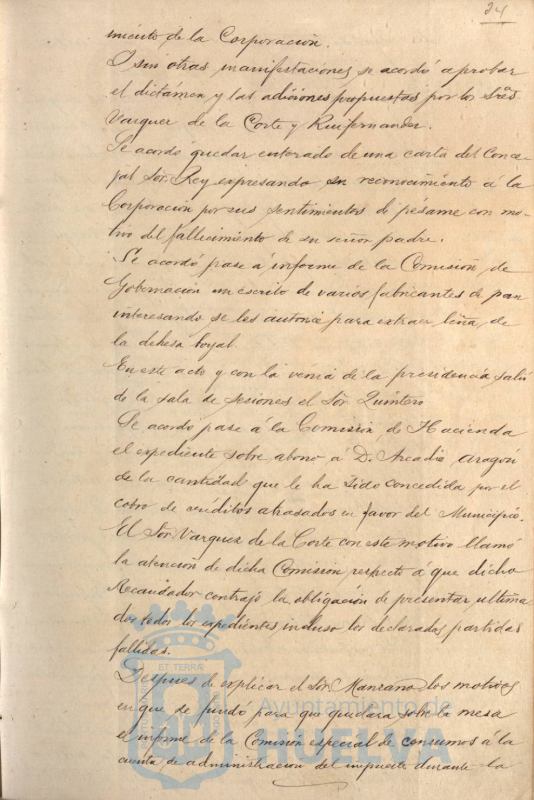 24
miento de la Corporación.
I sin otras manifestaciones se acordó aprobar
el dictamen y las adiciones propuestas por los Sres
Vazquez de la Corte y Ruifernandez.
Se acordó quedar enterado de una carta del Conce-
jal Sor. Rey expresando su reconocimiento á la
Corporación por sus sentimientos de pésame con mo-
tivo del fallecimiento de su señor padre.
Se acordó pase á informe de la Comisión de
Gobernación un escrito de varios fabricantes de pan
interesando se les autorice para extraer leña, de
la dehesa boyal.
En este acto y con la venia de la presidencia salió
de la sala de sesiones el Sor. Quintero
Se acordó pase á la Comisión de Hacienda
el expediente sobre abono á D. Arcadio Aragón
de la cantidad que le ha sido concedida por el
cobro de créditos atrasados en favor del Municipio.
El Sor. Vazquez de la Corte con este motivo llamó
la atención de dicha Comisión respecto á que dicho
Recaudador contrajo la obligación de presentar ultima
dos todos los expedientes incluso los declarados partidas
fallidas.
Despues de explicar el Sor. Manzano los motivos
en que se fundó para que quedara sobre la mesa
el informe de la Comisión especial de consumos á la
cuenta de administración del impuesto durante la
ET TERRÆ
Ayuntamiento de
HUELVA